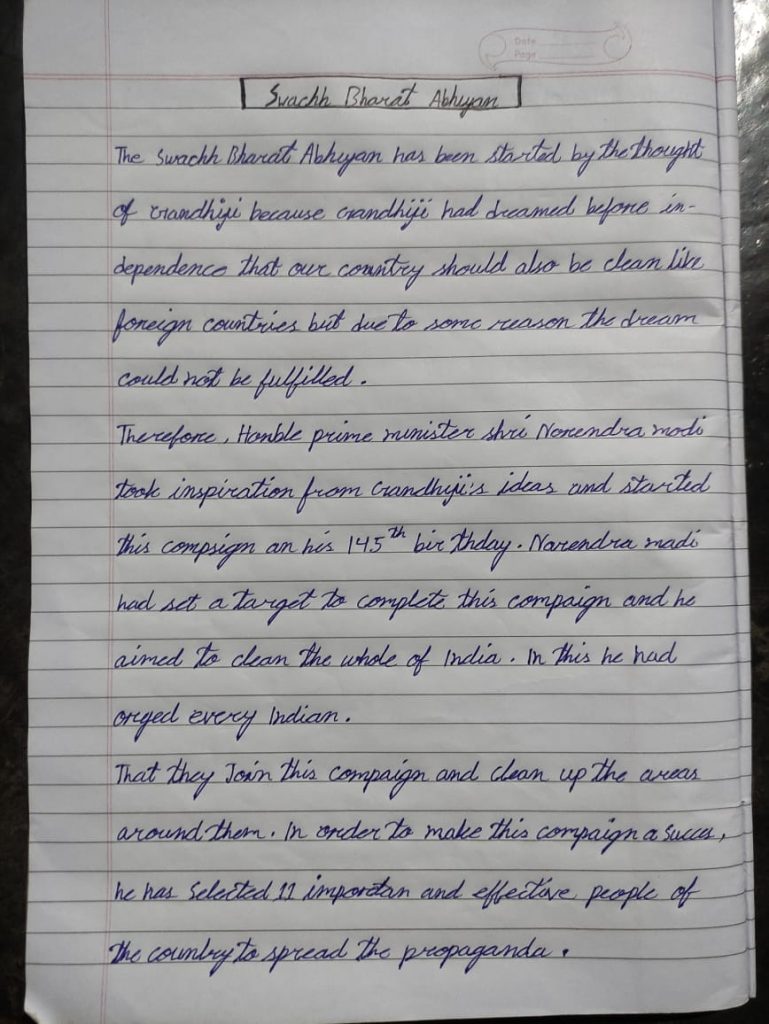 Date
Page
Swachh Bharat Abhiyan
The Swachh Bharat Abhiyan has been started by the thought
of Gandhiji because Gandhiji had dreamed before in-
dependence that our country should also be clean like
foreign countries but due to some reason the dream
could not be fulfilled.
Therefore, Honble prime minister shri Narendra modi
took inspiration from Gandhiji's ideas and started
this compaign on his 145th birthday. Narendra modi
had set a target to complete this compaign and he
aimed to clean the whole of India. In this he had
orged every Indian.
That they Join this compaign and clean up the areas
around them. In order to make this compaign a succes,
he has Selected 11 importan and effective people of
the country to spread the propaganda.